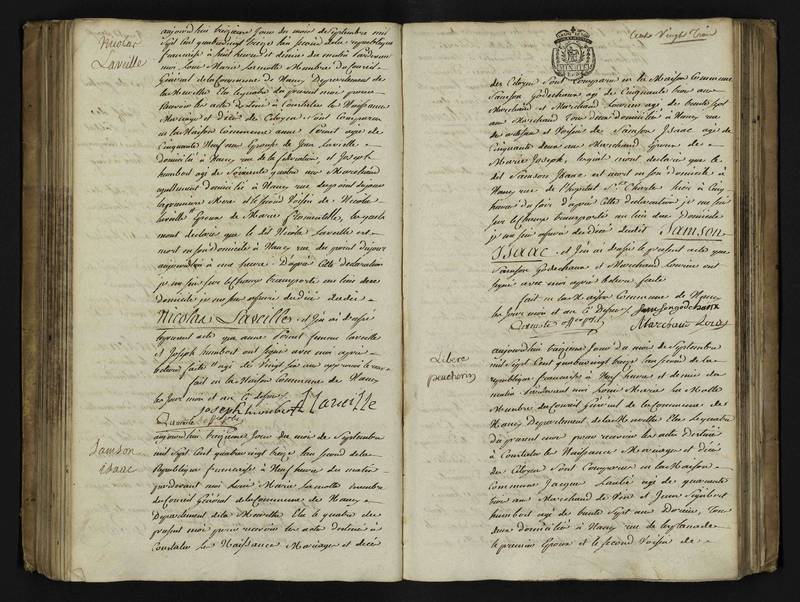 Nicolas
Laveille
aujourdhuy treizieme Jour du mois de Septembre mil
Sept Cent quatrevingt treize l'an second de la republique
francaise à huit heures et demie du matin pardevant
moi Louis Marie Lamotte Membre du Conseil
Général de la Commune de Nancy Departement de
la Meurthe Elu le quatre du present mois pour
Recevoir les actes destinés à Constater les Naissance
Mariage et décès de Citoyens Sont Comparus
en la Maison Commune anne Poirot agée de
Cinquante Neuf ans Epouse de Jean Laveille
domicilié à Nancy rue de la fédération, et Joseph
humbert agé de Soixante quatre ans Marchand
egallement domicilié à Nancy rue
la premiere Mere et le Second Voisin de Nicolas
Laveille Epoux de Marie fromentille, lesquels
mont declarés que le dit Nicolas Laveille est
mort en son domicile à Nancy rue du
aujourdhuy à une heure. D'après Cette declaration
je me suis Sur le Champ transporté au lieu du
domicile je me suis assuré du décès dudit
Nicolas Laveille, et J'en ai dressé
le present acte que anne Poirot femme Laveille
et Joseph humbert ont signé avec moi après
lecture faite
fait en la Maison Commune de Nancy
les Jour mois et an Cy dessus
Joseph humbert Laveille
Lamotte off. pub.
Samson
isaac
aujourdhuy treizieme Jour du mois de Septembre
mil Sept Cent quatrevingt treize l'an Second de la
Republique francaise à Neuf heures du matin
pardevant moi Louis Marie Lamotte Membre
du Conseil Général de la Commune de Nancy
Departement de la Meurthe Elu le quatre du
present mois pour recevoir les actes destinés à
Constater les Naissance Mariages et décès
Cent Vingt Trois
des Citoyens Sont Comparus en la Maison Commune
Samson Godechaux agé de Cinquante trois ans
Marchand et Marchand Lourion agé de trente Sept
ans Marchand Tous deux domiciliés à Nancy rue
et Voisin de Samson Isaac agé de
Cinquante deux ans Marchand Epoux de
Marie Joseph, lesquels mont declaré que le
dit Samson Isaac est mort en son domicile à
Nancy rue de l'hopital St Charle hier à Cinq
heures du Soir d'après Cette declaration je me suis
Sur le Champ transporté au lieu dudit domicile
je me suis assuré du décès dudit Samson
Isaac, et J'en ai dressé le present acte que
Samson Godechaux et Marchand Lourion ont
signé avec moi après lecture faite
fait en la Maison Commune de Nancy
les Jour mois et an Cy dessus Samson godchaux
Lamotte off. pub. Marchand
Libere
aujourdhuy treizieme Jour du mois de Septembre
mil Sept Cent quatrevingt treize l'an Second de la
republique francaise à Neuf heures et demie du
matin pardevant moi Louis Marie La Motte
Membre du Conseil Général de la Commune de
Nancy Departement de la Meurthe Elu le quatre
du present mois pour recevoir les actes destinés
à Constater les Naissance Mariage et décès
des Citoyens Sont Comparus en la Maison
Commune Jacque agé de quarante
trois ans Marchand de Vin et Jean
humbert agé de trente Sept ans Tous
deux domiciliés à Nancy rue de l'esplanade
le premier Epoux et le Second Voisin de